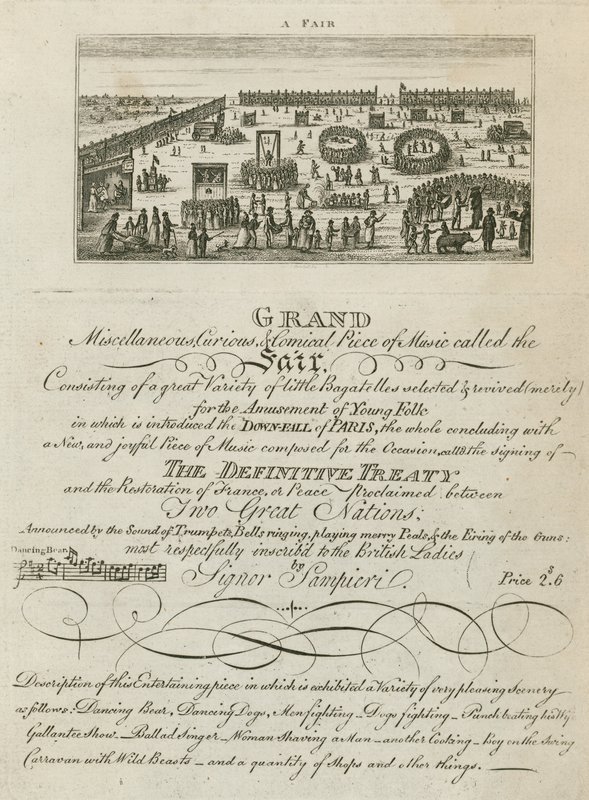 A FAIR
GRAND
Miscellaneous, Curious, & Comical Piece of Music called the
Fair.
Consisting of a great Variety of little Bagatelles selected & revived (merely)
for the Amusement of Young Folk
in which is introduced the DOWN-FALL of PARIS, the whole concluding with
a New, and joyful Piece of Music composed for the Occasion, calld the signing of —
THE DEFINITIVE TREATY
and the Restoration of France, or Peace proclaimed between
Two Great Nations;
Announced by the Sound of Trumpets, Bells ringing, playing merry Peals, & the Firing of the Guns:
most respecfully inscrib'd to the British Ladies
by
Dancing Bear.
Signor Sampieri.
Price 2.s 6
Description of this Entertaining piece in which is exhibited a Variety of very pleasing Scenery
as follows: Dancing Bear, Dancing Dogs, Men fighting — Dogs fighting — Punch beating his Wife
Gallantee Show — Ballad Singer — Woman Shaving a Man — another Cooking — Boy on the Swing
Carravan with Wild Beasts — and a quantity of Shops and other things. —